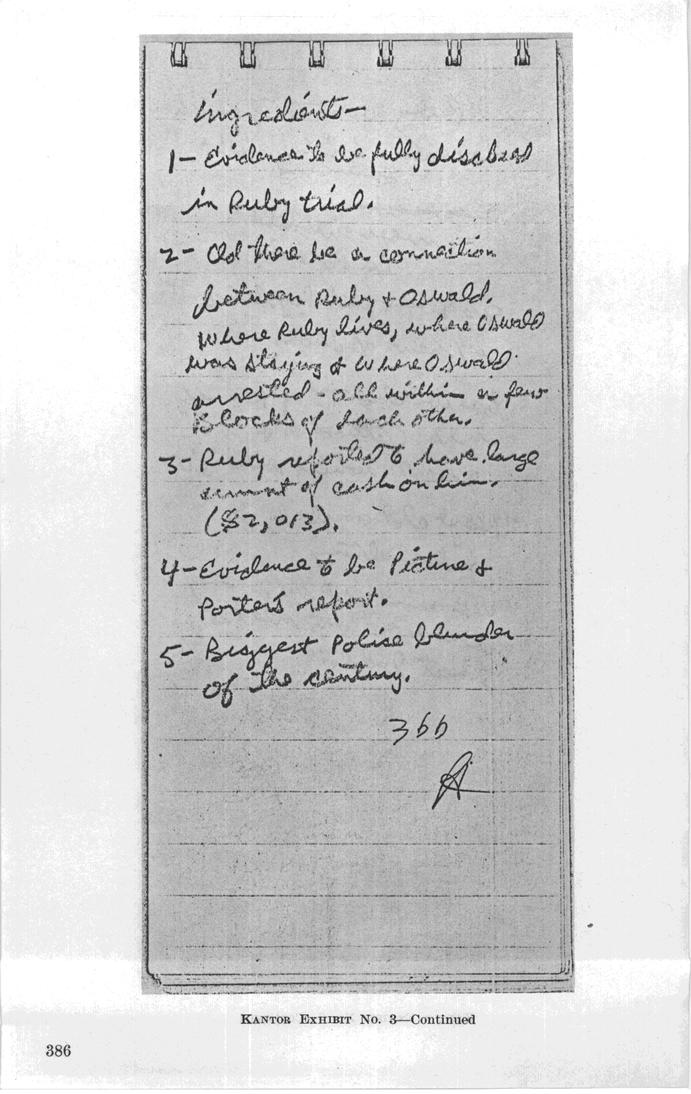 Ingredients—
1— Evidence to be fully disclosed
in Ruby trial.
2— Cld there be a connection
between Ruby & Oswald.
Where Ruby lives, where Oswald
was staying & where Oswald
arrested - all within a few
Blocks of each other.
3- Ruby reported to have large
amount of cash on him.
($2,013).
4— Evidence to be Picture &
Porter's report.
5- Biggest Police blunder
of the century.
366
KANTOR EXHIBIT No. 3—Continued
386